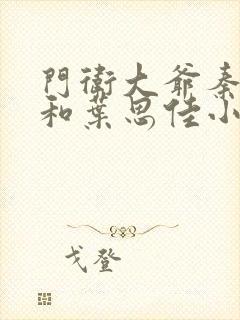 門衛大爺秦
和葉思佳小
戈登